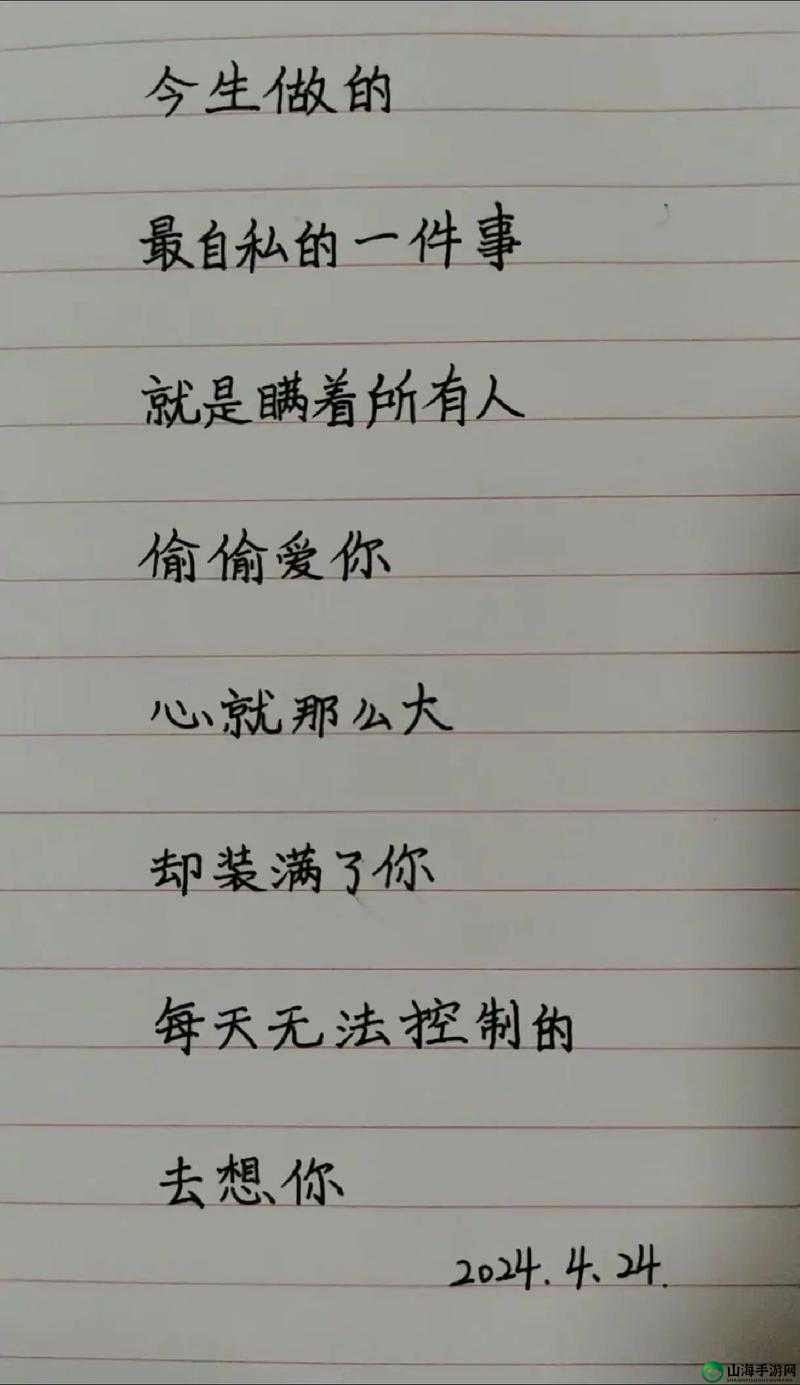 今生做的
最自私的一件事
就是瞒着所有人
偷偷爱你
心就那么大
却装满了你
每天无法控制的
去想你
2024.4.24.
山海手游网